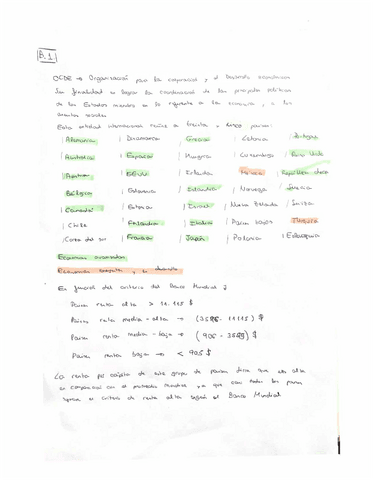 B.1.
OCDE → Organización para la cooperación y el Desarrollo económicos
Su finalidad es lograr la coordinación de las políticas
de los Estados miembros en lo referente a la economía, y a los
asuntos sociales
Esta entidad internacional reúne a treinta y cinco países:
/ Alemania / Dinamarca / Grecia / Letonia / Portugal
/ Australia / España / Hungría / Luxemburgo / Reino Unido
/ Austria / EEUU / Irlanda / México / República checa
Bélgica / Eslovenia / Islandia / Noruega / Suecia
/ Canadá / Estonia / Israel / Nueva Zelanda / Suiza
/ Chile / Finlandia / Italia / Países bajos / Turquía
/ Corea del sur / Francia / Japón / Polonia / Eslovaquia
Economías avanzadas
Economías emergentes y en desarrollo
En general del criterio del Banco Mundial
Países renta alta >
Países renta media - alta →
Países renta media - baja →
Países renta baja → < 905 $
La renta per cápita de este grupo de países dice que es alta
en comparación con el promedio mundial, ya que casi todos los países
el criterio de renta alta según el Banco Mundial